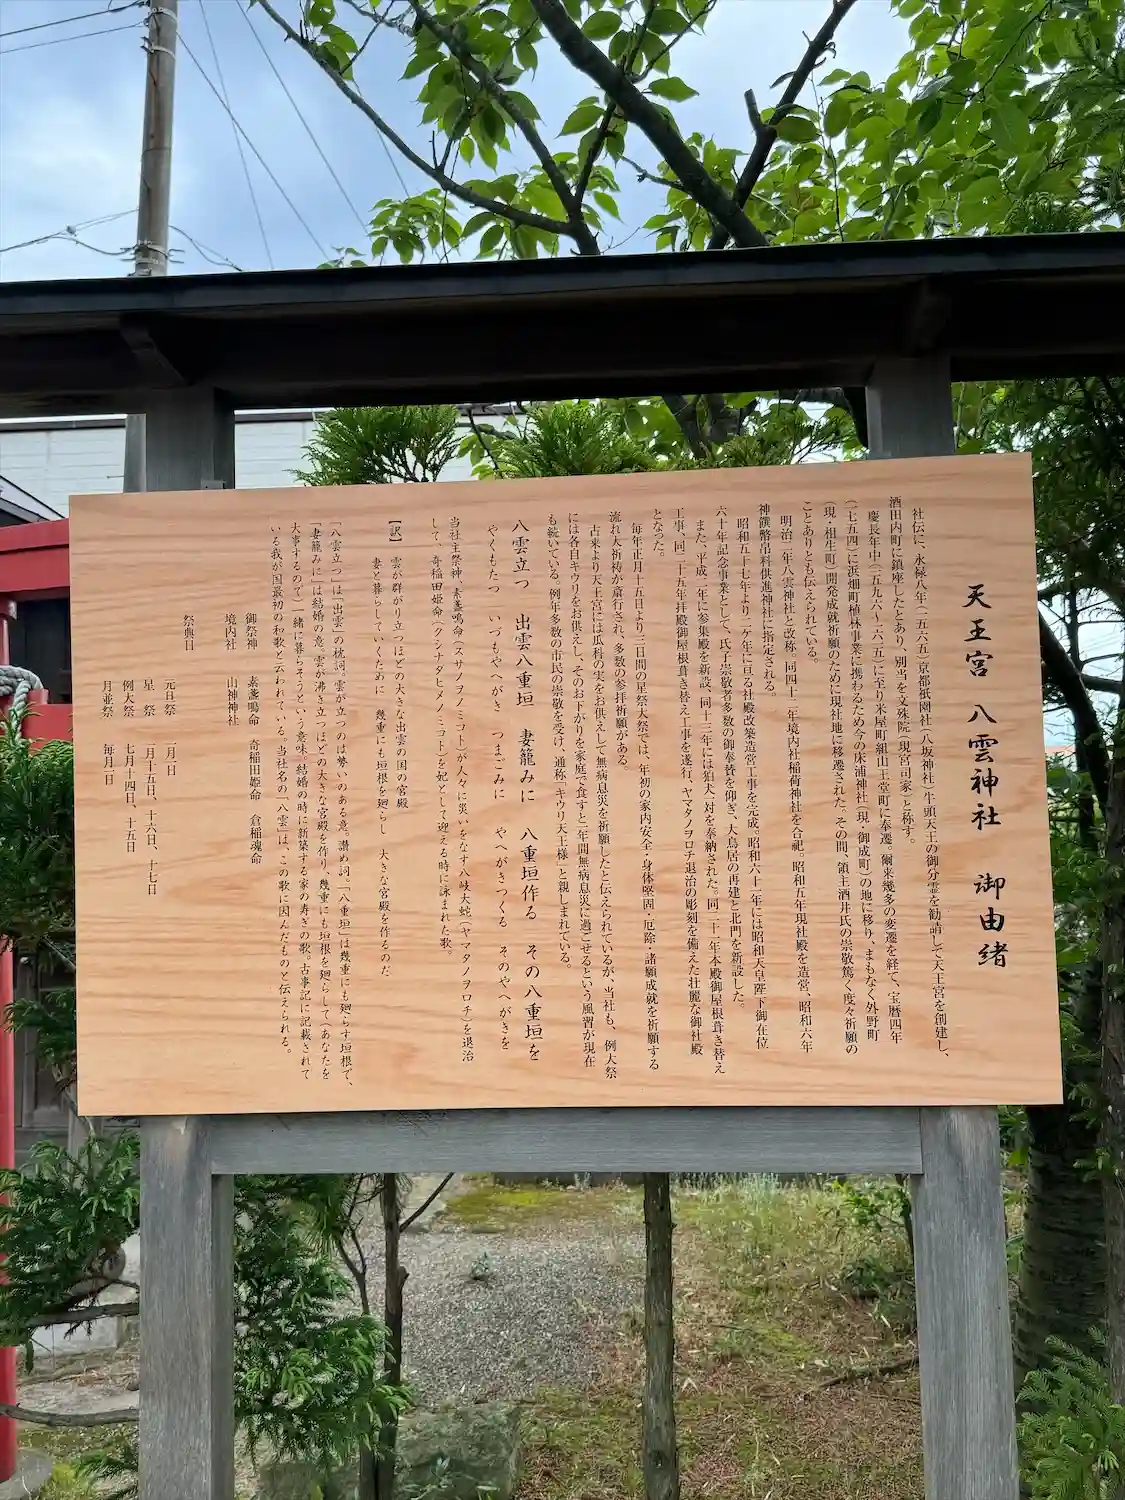 天王宮 八雲神社 御由緒
社伝に、永禄八年（一五六五）京都祇園社（八坂神社）牛頭天王の御分霊を勧請して天王宮を創建し、
酒田内町に鎮座したとあり、別当を文殊院（現宮司家）と称す。
慶長年中（一五九六～一六一五）に至り米屋町組山王堂町に奉遷。爾来幾多の変遷を経て、宝暦四年
（一七五四）に浜畑町植林事業に携わるため今の床浦神社（現 御成町）の地に移り、まもなく外野町
（現・相生町）開発成就祈願のために現社地に移遷された。その間、領主酒井氏の崇敬篤く度々祈願の
ことありとも伝えられている。
明治三年八雲神社と改称、同四十一年境内社稲荷神社を合祀。昭和五年現社殿を造営、昭和六年
神饌幣帛料供進神社に指定される。
昭和五十七年より二ケ年に亘る社殿改築造営工事を完成。昭和六十一年には昭和天皇陛下御在位
六十年記念事業として、氏子崇敬者多数の御奉賛を仰ぎ、大鳥居の再建と北門を新設した。
また、平成二年に参集殿を新設、同十三年には狛犬一対を奉納された。同二十一年本殿御屋根葺き替え
工事、同二十五年拝殿御屋根葺き替え工事を遂行、ヤマタノヲロチ退治の彫刻を備えた壮麗な御社殿
となった。
毎年正月十五日より三日間の星祭大祭では、年初の家内安全・身体堅固・厄除・諸願成就を祈願する
流れ大祈祷が斎行され、多数の参拝祈願がある。
古来より天王宮には瓜科の実をお供えして無病息災を祈願したと伝えられているが、当社も、例大祭
には各自キウリをお供えし、そのお下がりを家庭で食すと一年間無病息災に過ごせるという風習が現在
も続いている。例年多数の市民の崇敬を受け、通称「キウリ天王様」と親しまれている。
八雲立つ 出雲八重垣 妻籠みに 八重垣作る その八重垣を
やくもたつ いづもやへがき つまごみに やへがきつくる そのやへがきを
当社主祭神、素盞鳴命（スサノヲノミコト）が人々に災いをなす八岐大蛇（ヤマタノヲロチ）を退治
して、奇稲田姫命（クシナダヒメノミコト）を妃として迎える時に詠まれた歌。
【訳】 雲が群がり立つほどの大きな出雲の国の宮殿
妻と暮らしていくために 幾重にも垣根を廻らし 大きな宮殿を作るのだ
「八雲立つ」は「出雲」の枕詞。雲が立つのは勢いのある意。讃め詞。「八重垣」は幾重にも廻らす垣根で、
「妻籠みに」は結婚の意。雲が沸き立つほどの大きな宮殿を作り、幾重にも垣根を廻らして（あなたを
大事するので）一緒に暮らそうという意味。結婚の時に新築する家の寿ぎの歌。古事記に記載されて
いる我が国最初の和歌と云われている。当社名の「八雲」は、この歌に因んだものと伝えられる。
御祭神 素盞鳴命 奇稲田姫命 倉稲魂命
境内社 山神神社
祭典日
元旦祭 一月一日
星 祭 一月十五日、十六日、十七日
例大祭 七月十四日、十五日
月並祭 毎月一日